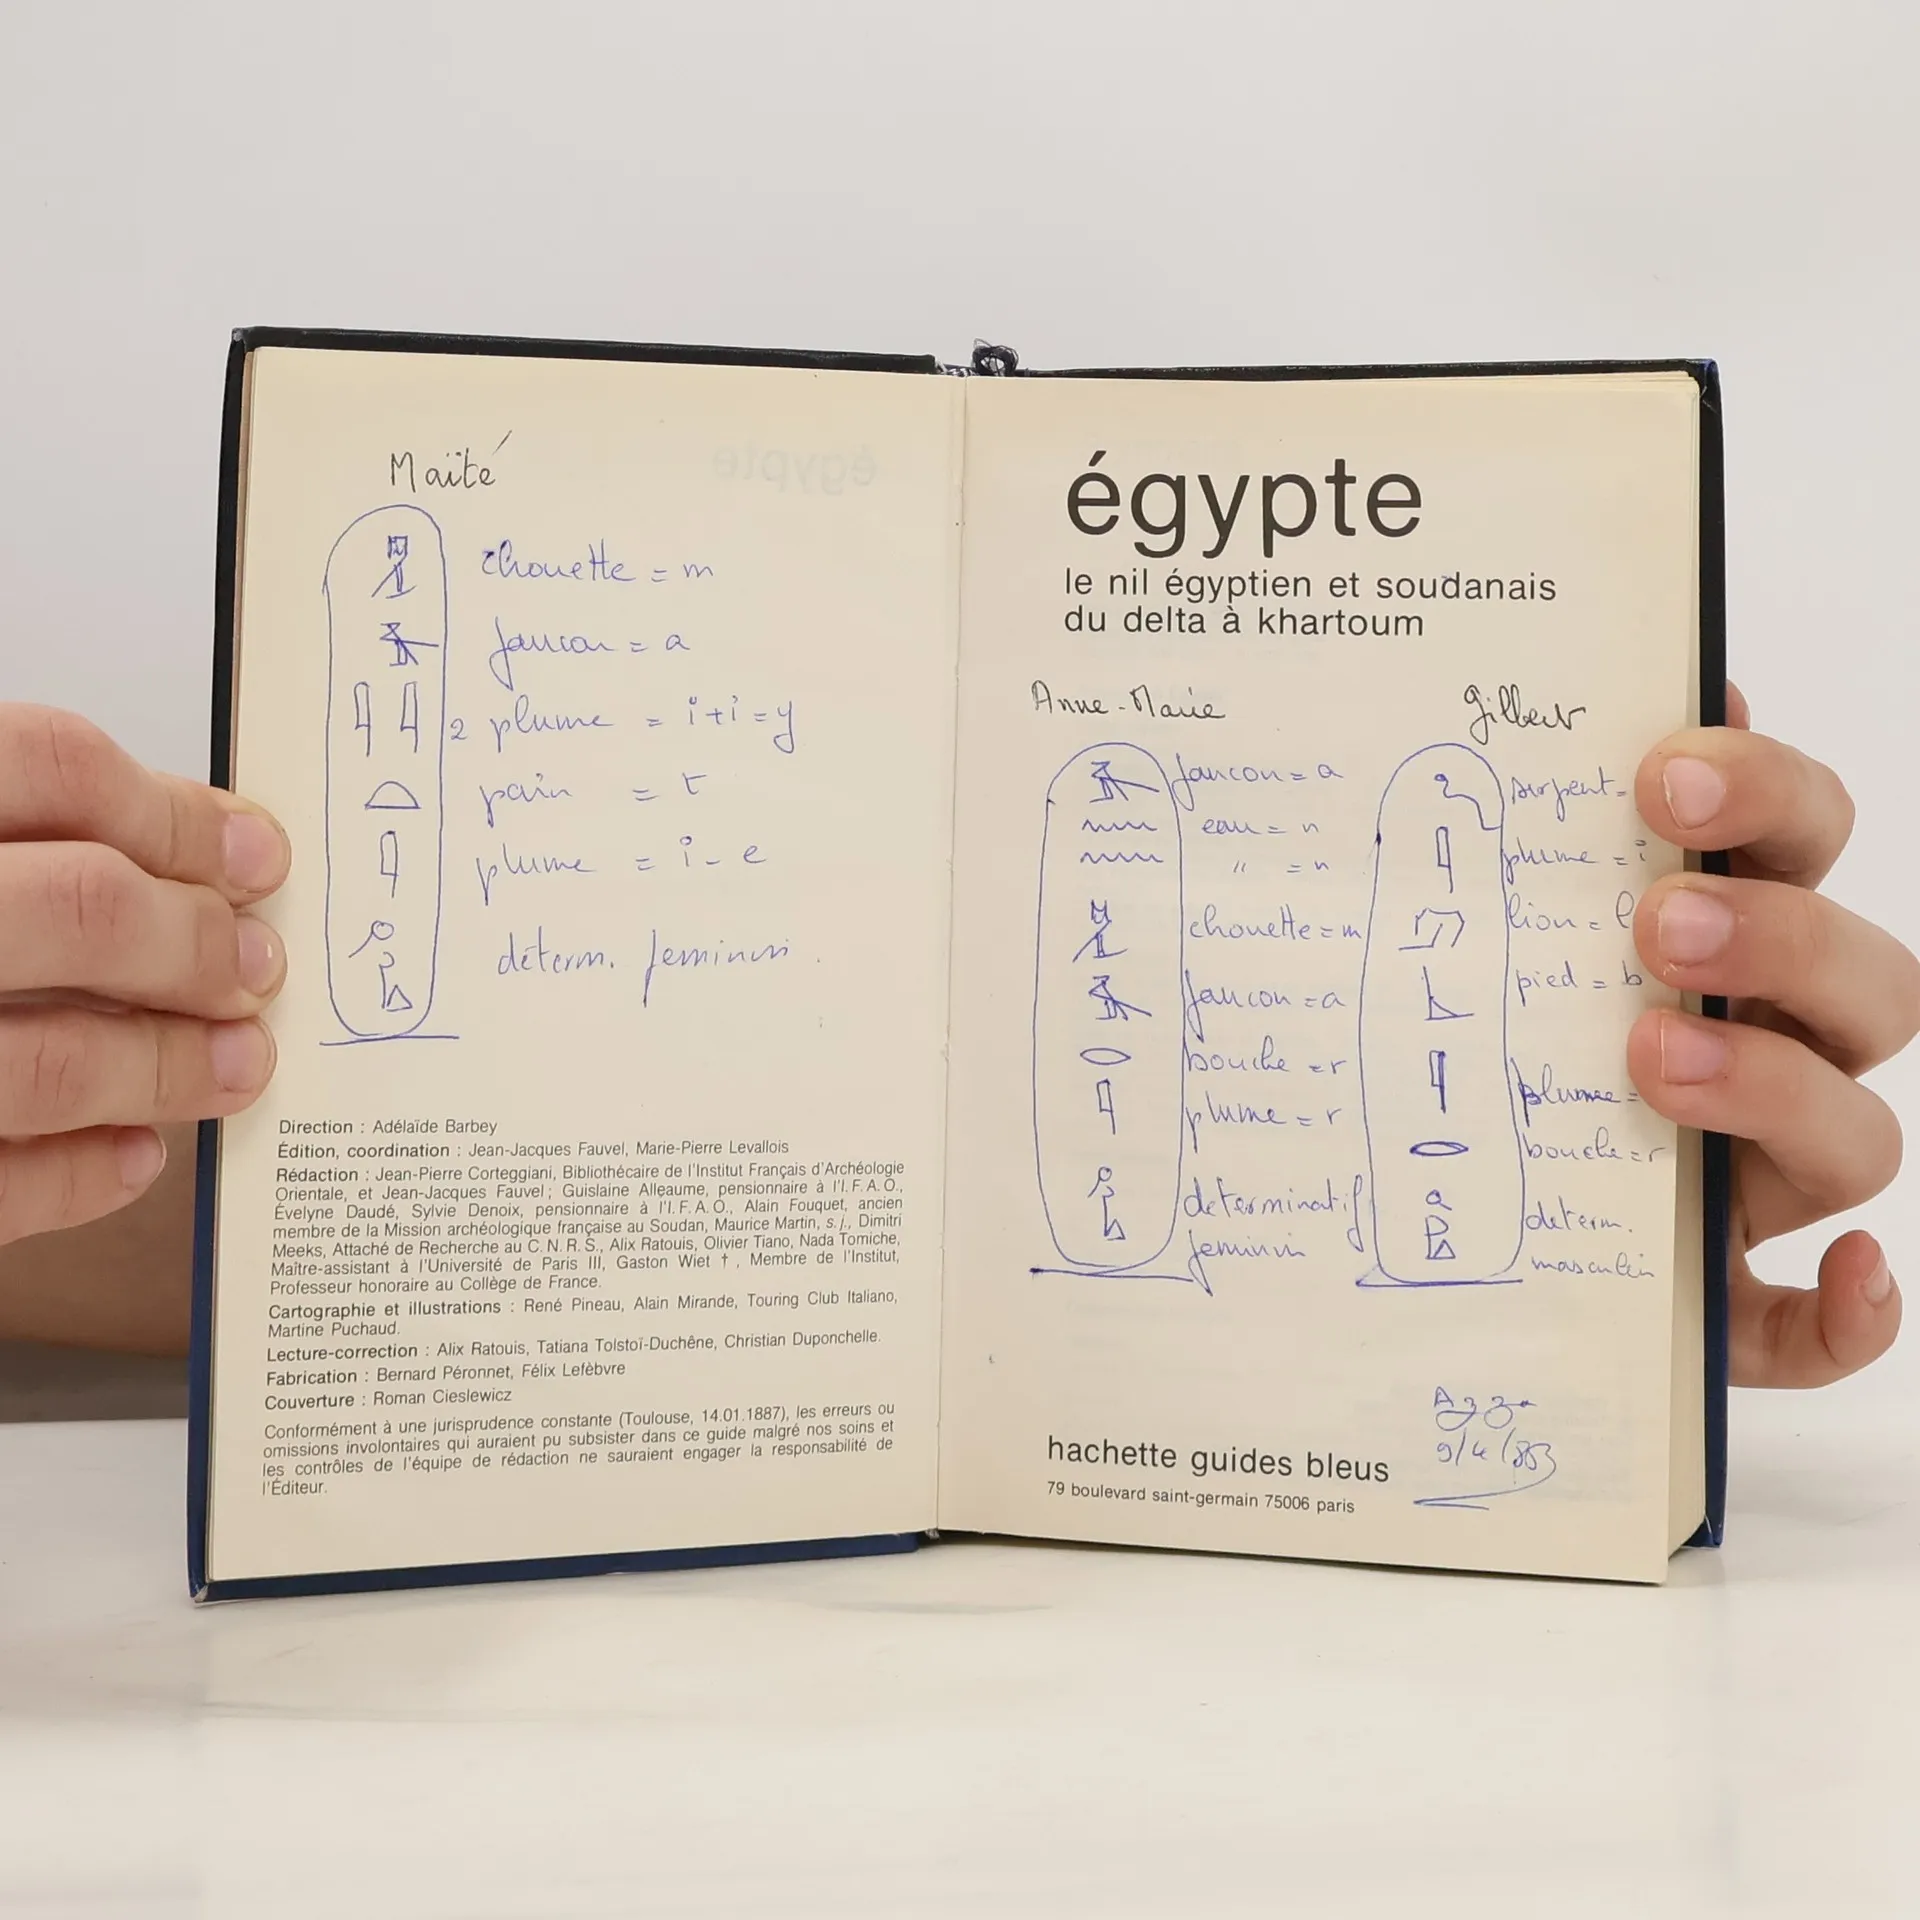 Maïté
chouette = m
faucon = a
2 plume = i+i=y
pain = t
plume = i - e
déterm. feminin.
Direction : Adélaïde Barbey
Édition, coordination : Jean-Jacques Fauvel, Marie-Pierre Levallois
Rédaction : Jean-Pierre Corteggiani, Bibliothécaire de l'Institut Français d'Archéologie
Orientale, et Jean-Jacques Fauvel ; Guislaine Alleaume, pensionnaire à l'I.F.A.O.,
Évelyne Daudé, Sylvie Denoix, pensionnaire à l'I.F.A.O., Alain Fouquet, ancien
membre de la Mission archéologique française au Soudan, Maurice Martin, s.j., Dimitri
Meeks, Attaché de Recherche au C.N.R.S., Alix Ratouis, Olivier Tiano, Nada Tomiche,
Maître-assistant à l'Université de Paris III, Gaston Wiet †, Membre de l'Institut,
Professeur honoraire au Collège de France.
Cartographie et illustrations : René Pineau, Alain Mirande, Touring Club Italiano,
Martine Puchaud.
Lecture-correction : Alix Ratouis, Tatiana Tolstoï-Duchêne, Christian Duponchelle.
Fabrication : Bernard Péronnet, Félix Lefèbvre
Couverture : Roman Cieslewicz
Conformément à une jurisprudence constante (Toulouse, 14.01.1887), les erreurs ou
omissions involontaires qui auraient pu subsister dans ce guide malgré nos soins et
les contrôles de l'équipe de rédaction ne sauraient engager la responsabilité de
l'Éditeur.
égypte
le nil égyptien et soudanais
du delta à khartoum
Anne-Marie
faucon = a
eau = n
" = n
chouette = m
faucon = a
bouche = r
plume = r
determinatif
feminin
Gilbert
serpent =
plume = i
lion = l
pied = b
plume =
bouche = r
determ.
masculin
hachette guides bleus
79 boulevard saint-germain 75006 paris